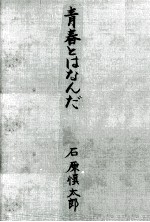 青春とはなんだ
石原慎太郎